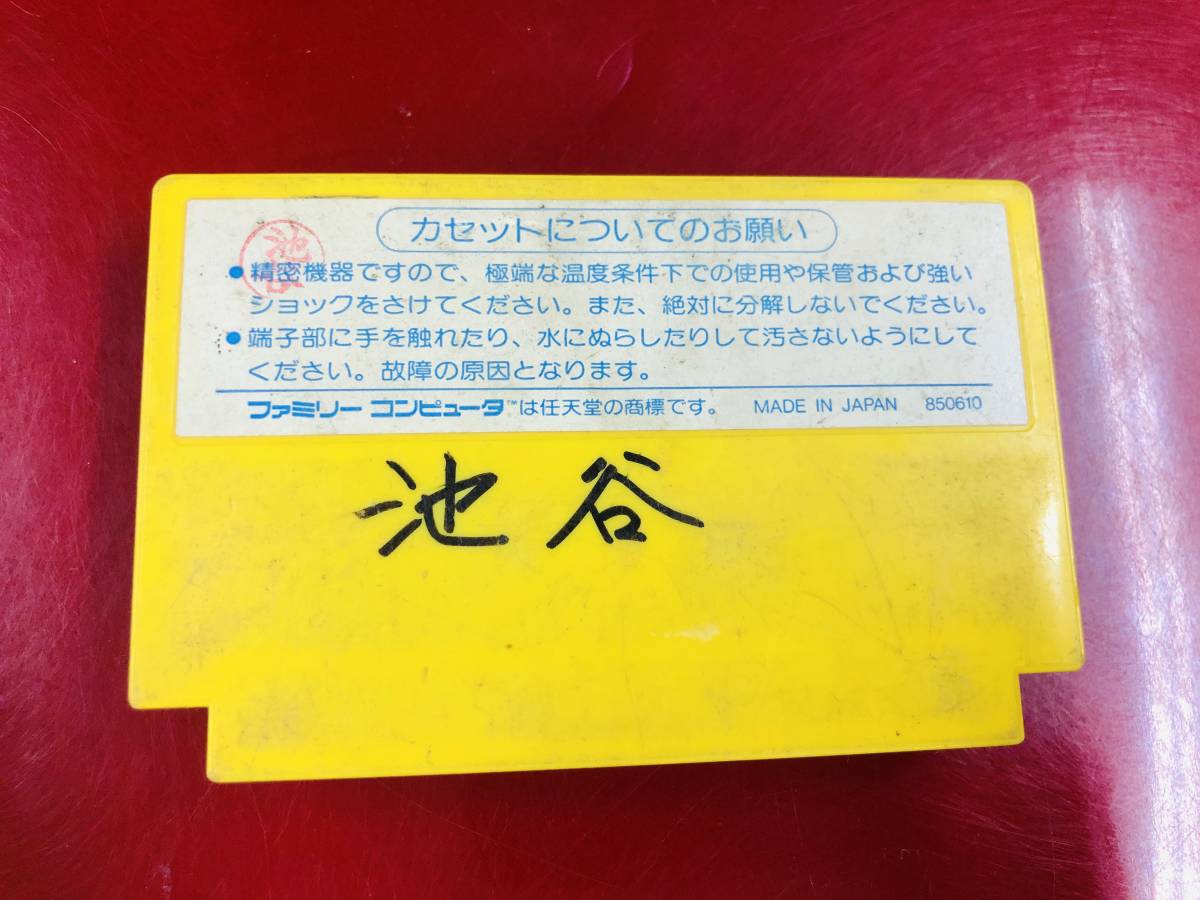 カセットについてのお願い
池
●精密機器ですので、極端な温度条件下での使用や保管および強い
ショックをさけてください。また、絶対に分解しないでください。
●端子部に手を触れたり、水にぬらしたりして汚さないようにして
ください。故障の原因となります。
ファミリー コンピュータ™は任天堂の商標です。 MADE IN JAPAN 850610
池谷